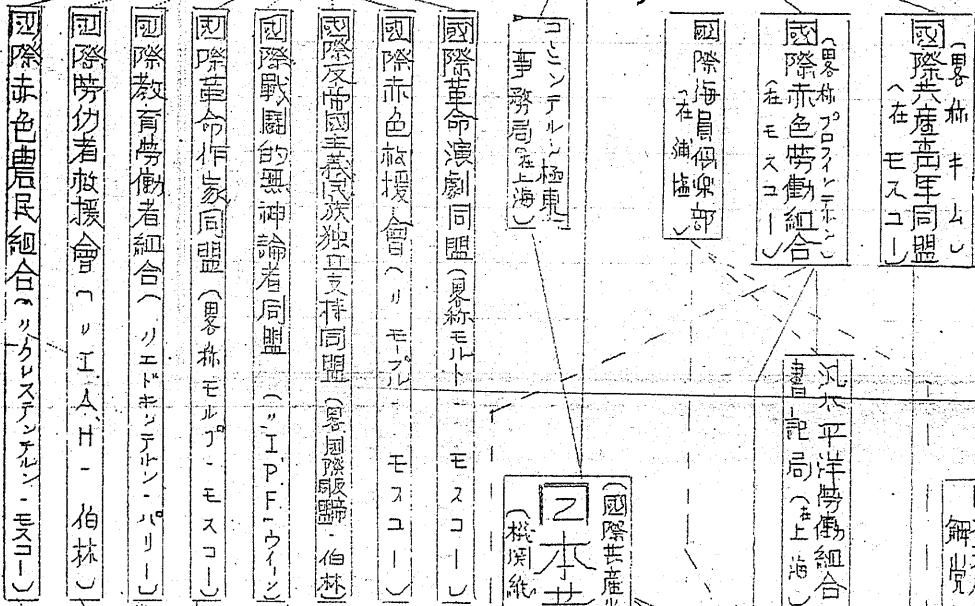 (畧称 キム)
國際共産青年同盟
(在 モスコー)
(畧称 プロフインテルン)
國際赤色勞働組合
(在 モスコー)
國際海員倶楽部
(在 浦塩)
コミンテルン極東
事務局(在上海)
國際革命演劇同盟(畧称モルト - モスコー)
國際赤色救援會(〃 モープル - モスコー)
國際反帝國主義民族独立支持同盟(畧國際反帝 - 伯林)
國際戰闘的無神論者同盟(〃I.P.F-ウイーン)
國際革命作家同盟(畧称モルプ - モスコー)
國際教育勞働者組合(〃エドキンテルン - パリー)
國際勞仂者救援會(〃I.A.H - 伯林)
國際赤色農民組合(〃クレステンテルン - モスコー)
汎太平洋勞働組合
書記局(在上海)
解党
(國際共産
日本共
(機関紙